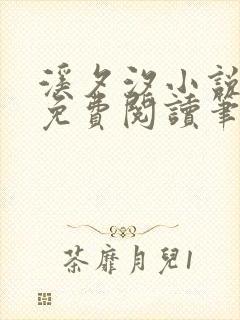 溪夕汐小說
免費閱讀筆
荼靡月兒1